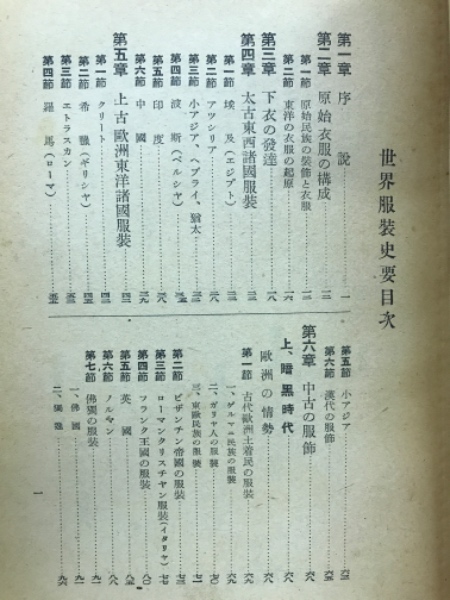 世界服裝史要目次
第一章 序說……一
第二章 原始衣服の構成……一二
第一節 原始民族の裝飾と衣服……一二
第二節 東洋の衣服の起原……一六
第三章 下衣の發達……一八
第四章 太古東西諸國服裝……二二
第一節 埃及(エジプト)……二二
第二節 アツシリア……二八
第三節 小アジア、ヘブライ、猶太……三二
第四節 波斯(ペルシヤ)……三五
第五節 印度……三八
第六節 中國……三九
第五章 上古歐洲東洋諸國服裝……四二
第一節 クリート……四二
第二節 希臘(ギリシヤ)……四五
第三節 エトラスカン……五三
第四節 羅馬(ローマ)……五五
第五節 小アジア……六三
第六節 漢代の服飾……六五
第六章 中古の服飾……六八
上、暗黑時代
歐洲の情勢……六八
第一節 古代歐洲土着民の服裝……六九
一、ゲルマニ民族の服裝……六九
二、ガリヤ人の服裝……七〇
三、東歐民族の服裝……七一
第二節 ビザンチン帝國の服裝……七三
第三節 ローマンクリスチヤン服裝(イタリヤ)……七七
第四節 フランク王國の服裝……八〇
第五節 英國……八五
第六節 ノルマン……八八
第七節 佛獨の服裝……九一
一、佛國……九一
二、獨逸……九六
一